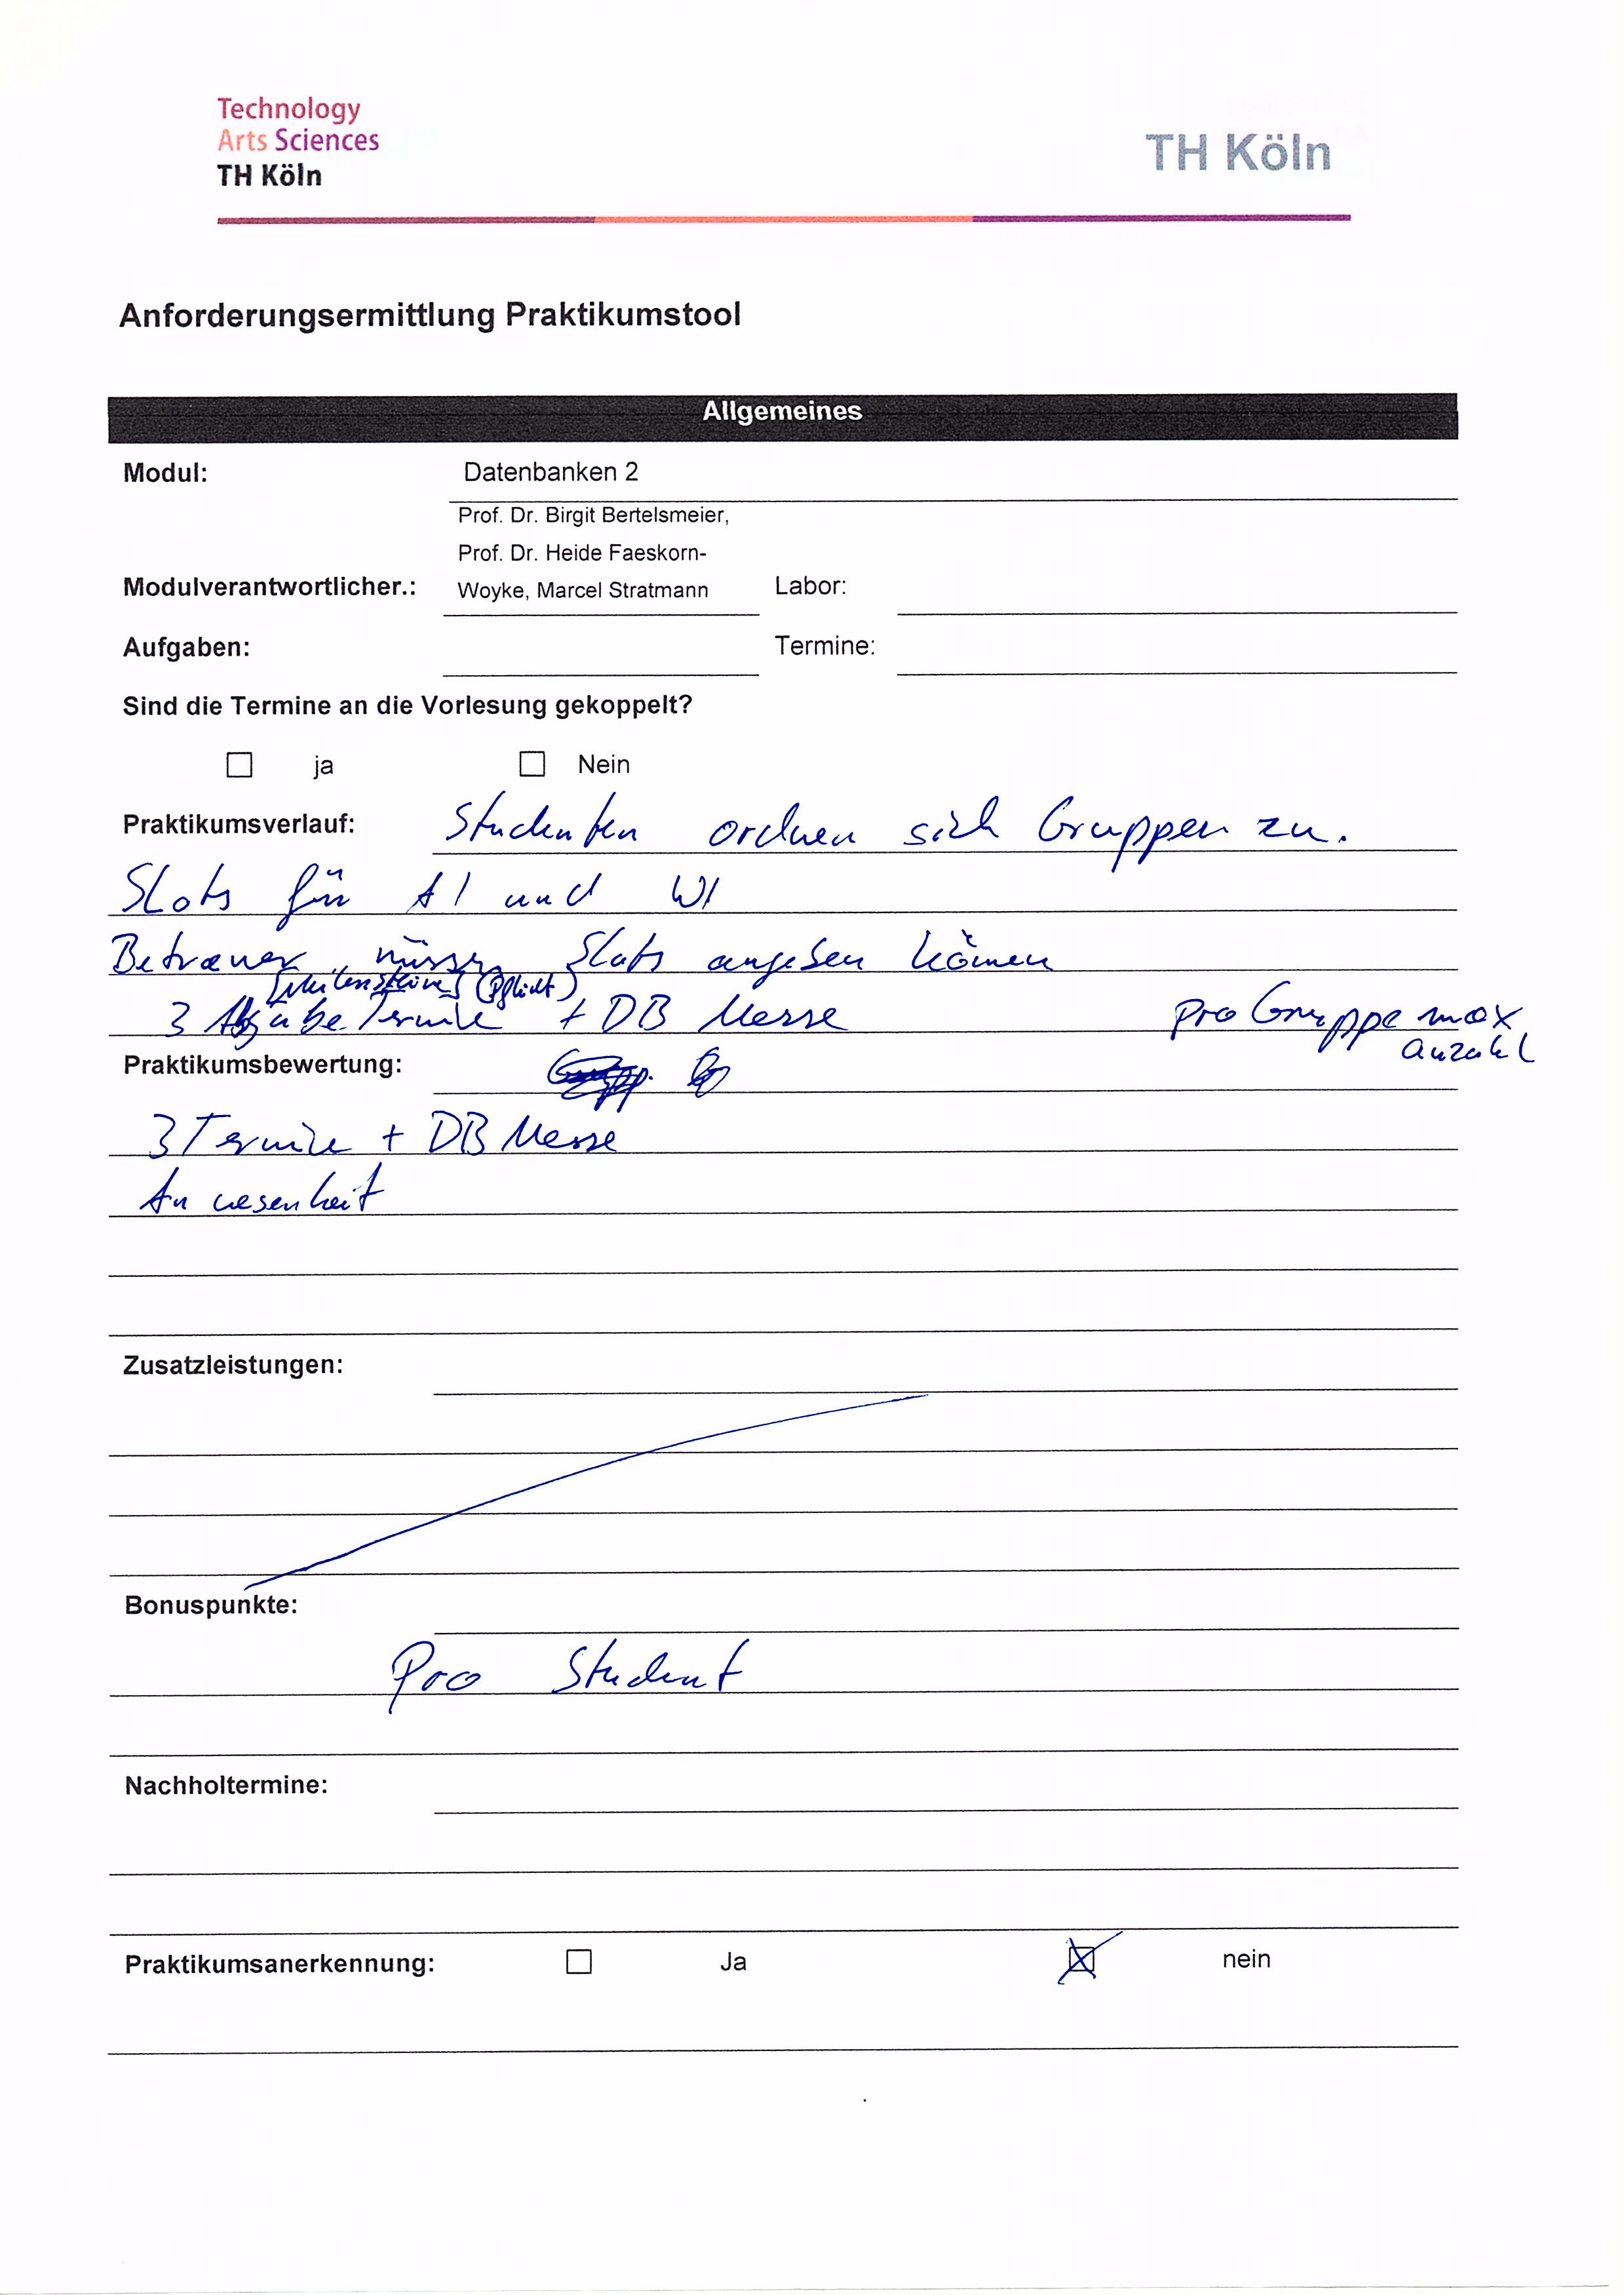 Technology
Arts Sciences
TH Köln
TH Köln
Anforderungsermittlung Praktikumstool
Allgemeines
Modul: Datenbanken 2
Prof. Dr. Birgit Bertelsmeier,
Prof. Dr. Heide Faeskorn-
Modulverantwortlicher.: Woyke, Marcel Stratmann Labor:
Aufgaben: Termine:
Sind die Termine an die Vorlesung gekoppelt?
ja Nein
Praktikumsverlauf: Studenten ordnen sich Gruppen zu.
Slots für AI und WI
Betreuer müssen Slots angeben können
[Meilensteine] (Pflicht)
3 Abgabe Termine + DB Messe pro Gruppe max
anzahl
Praktikumsbewertung:
3 Termine + DB Messe
Anwesenheit
Zusatzleistungen:
Bonuspunkte:
Pro Student
Nachholtermine:
Praktikumsanerkennung: Ja nein